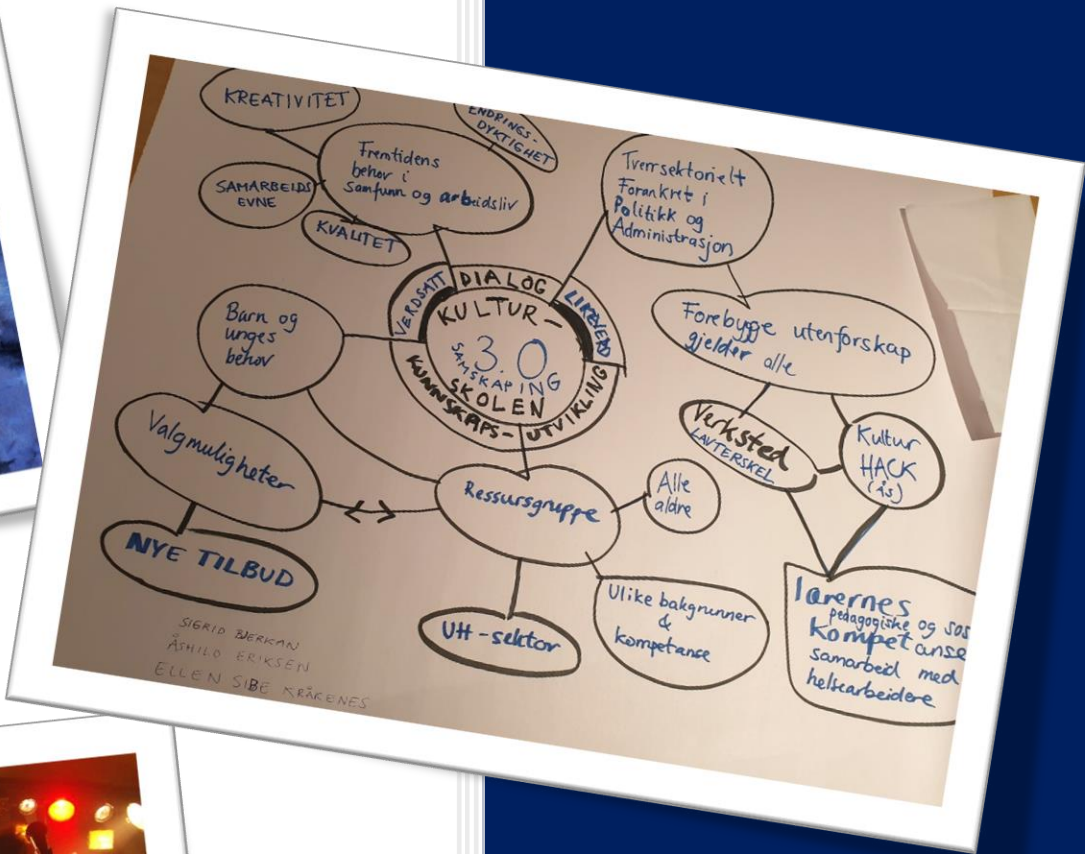 KREATIVITET
ENDRINGS-
DYKTIGHET
Fremtidens
behov i
Samfunn og arbeidsliv
SAMARBEIDS
EVNE
KVALITET
Tverrsektorielt
Forankret i
Politikk og
Administrasjon
VERDSATT
DIALOG
LIKEVERD
KUNNSKAPS-UTVIKLING
KULTUR-
3.0
SAMSKAPING
SKOLEN
Barn og
unges
behov
Forebygge utenforskap
gjelder alle
Valgmuligheter
Verksted
LAVTERSKEL
Kultur
HACK
(ÅS)
Ressursgruppe
Alle
aldre
NYE TILBUD
UH-sektor
Ulike bakgrunner
&
kompetanse
lærernes
pedagogiske og sos
kompetanse
samarbeid med
helsearbeidere
SIGRID BJERKAN
ÅSHILD ERIKSEN
ELLEN SIBE KRÅKENES